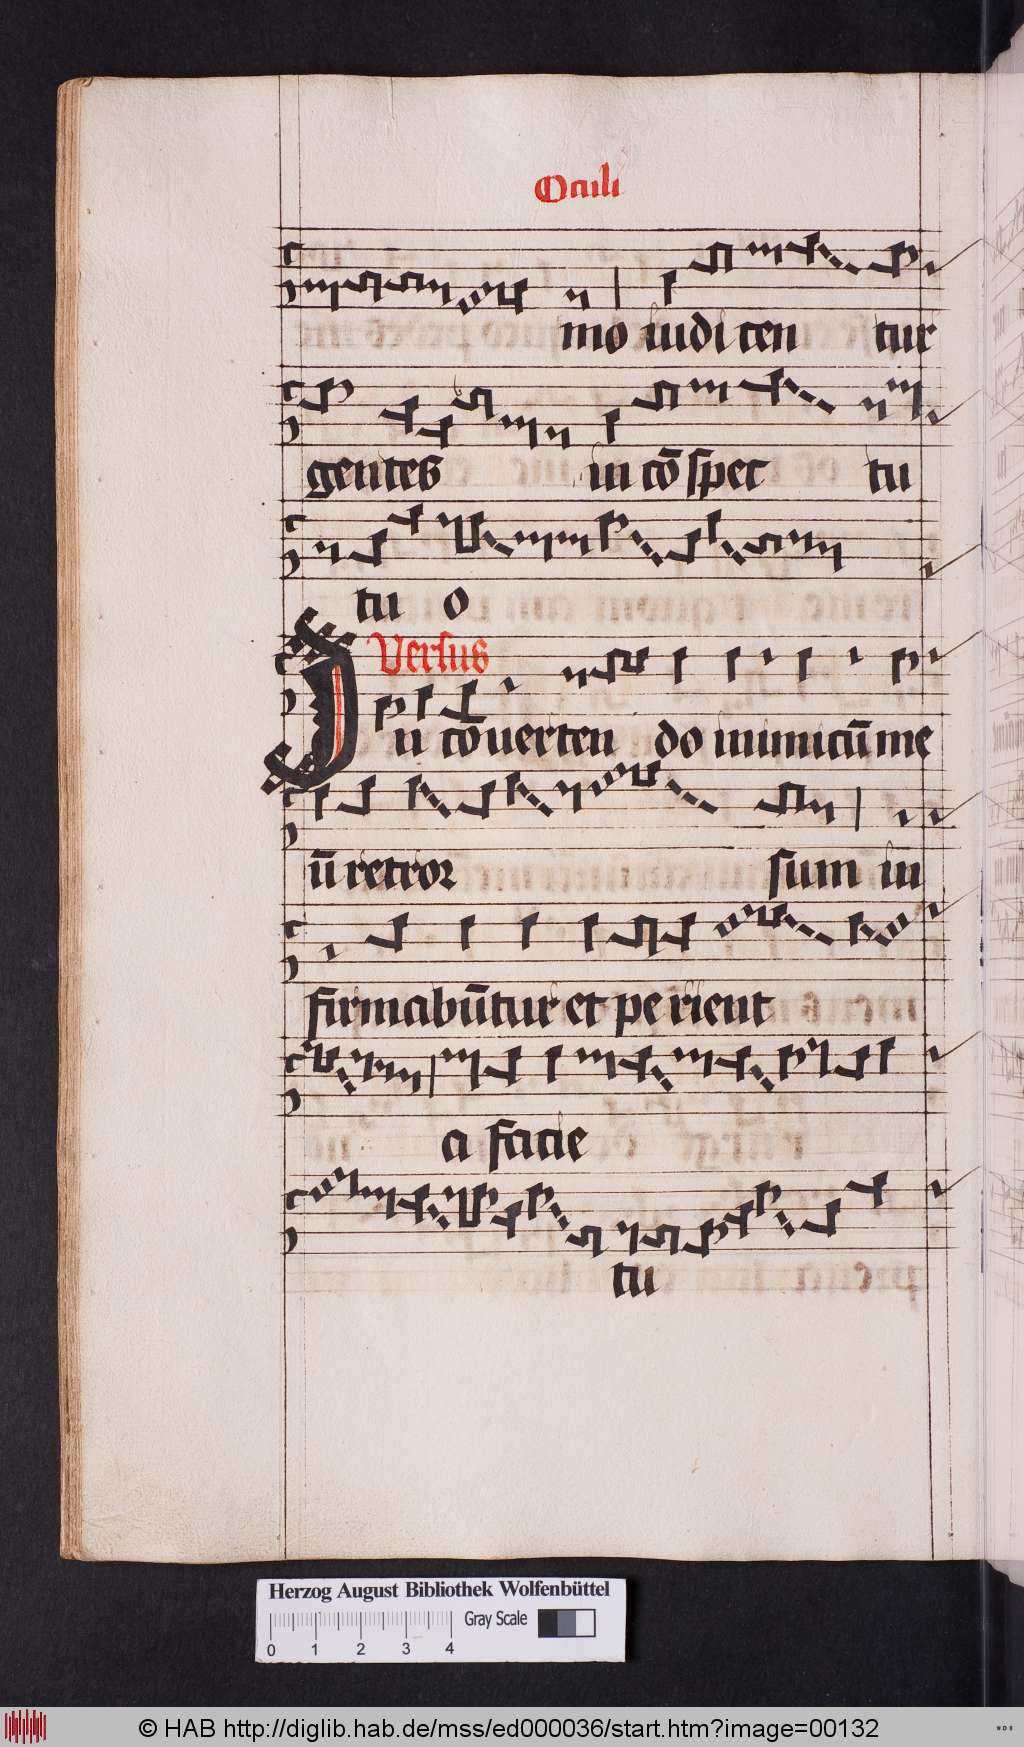 Oculi
mo iudi cen tur
gentes in cō spec tu
tu o
Versus
In cōuerten do inimicū me
ū retror sum in
firmabūtur et pe rient
a facie
tu
Herzog August Bibliothek Wolfenbüttel
Gray Scale
0 1 2 3 4
© HAB http://diglib.hab.de/mss/ed000036/start.htm?image=00132